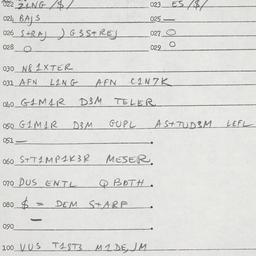 022 2ING /$/ 023 ES /$/
024 BAJS 025 —
026 S+RAJ ) G3S+REJ 027 O
028 O 029 O
030 N&1XTER
031 AFN L1NG AFN C1N7K
040 G1M1R D3M TELER
050 G1M1R D3M GUPL AS+TUD3M LEFL
051 —
060 S+T1MP1K3R MESER.
070 DUS ENTL Q BOTH.
080 $ = DEM S+ARF.
—
090
100 VUS T1ST3 M1DEJM